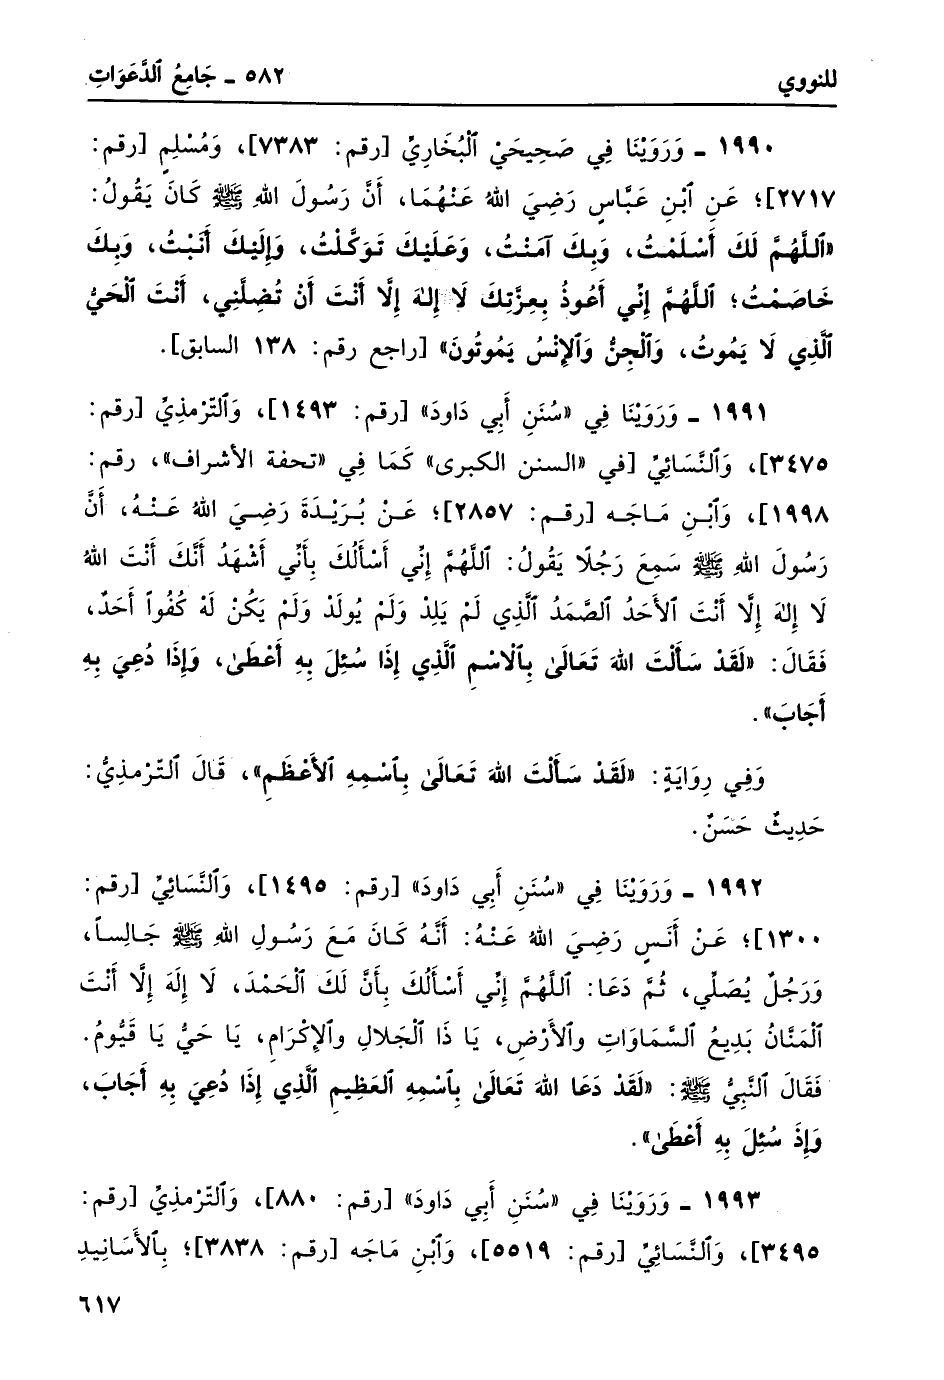 للنووي ٥٨٢ ـ جَامِعُ ٱلدَّعَوَاتِ
١٩٩٠ ـ وَرَوَيْنَا فِي صَحِيحَيْ ٱلْبُخَارِيِّ [رقم: ٧٣٨٣]، وَمُسْلِمٍ [رقم:
٢٧١٧]؛ عَنِ ٱبْنِ عَبَّاسٍ رَضِيَ اللهُ عَنْهُمَا، أَنَّ رَسُولَ اللهِ ﷺ كَانَ يَقُولُ:
«ٱللَّهُمَّ لَكَ أَسْلَمْتُ، وَبِكَ آمَنْتُ، وَعَلَيْكَ تَوَكَّلْتُ، وَإِلَيْكَ أَنَبْتُ، وَبِكَ
خَاصَمْتُ؛ ٱللَّهُمَّ إِنِّي أَعُوذُ بِعِزَّتِكَ لَا إِلٰهَ إِلَّا أَنْتَ أَنْ تُضِلَّنِي، أَنْتَ ٱلْحَيُّ
ٱلَّذِي لَا يَمُوتُ، وَٱلْجِنُّ وَٱلإِنْسُ يَمُوتُونَ» [راجع رقم: ١٣٨ السابق].
١٩٩١ ـ وَرَوَيْنَا فِي «سُنَنِ أَبِي دَاودَ» [رقم: ١٤٩٣]، وَٱلتِّرْمذِيِّ [رقم:
٣٤٧٥]، وَٱلنَّسَائِيِّ [في «السنن الكبرى» كَمَا فِي «تحفة الأشراف»، رقم:
١٩٩٨]، وَٱبْنِ مَاجَه [رقم: ٢٨٥٧]؛ عَنْ بُرَيْدَةَ رَضِيَ اللهُ عَنْهُ، أَنَّ
رَسُولَ اللهِ ﷺ سَمِعَ رَجُلًا يَقُولُ: ٱللَّهُمَّ إِنِّي أَسْأَلُكَ بِأَنِّي أَشْهَدُ أَنَّكَ أَنْتَ اللهُ
لَا إِلٰهَ إِلَّا أَنْتَ ٱلأَحَدُ ٱلصَّمَدُ ٱلَّذِي لَمْ يَلِدْ وَلَمْ يُولَدْ وَلَمْ يَكُنْ لَهُ كُفُواً أَحَدٌ،
فَقَالَ: «لَقَدْ سَأَلْتَ اللهَ تَعَالَىٰ بِٱلْاسْمِ ٱلَّذِي إِذَا سُئِلَ بِهِ أَعْطَىٰ، وَإِذَا دُعِيَ بِهِ
أَجَابَ».
وَفِي رِوَايَةٍ: «لَقَدْ سَأَلْتَ اللهَ تَعَالَىٰ بِٱسْمِهِ ٱلأَعْظَمِ»، قَالَ ٱلتِّرْمذِيُّ:
حَدِيثٌ حَسَنٌ.
١٩٩٢ ـ وَرَوَيْنَا فِي «سُنَنِ أَبِي دَاودَ» [رقم: ١٤٩٥]، وَٱلنَّسَائِيِّ [رقم:
١٣٠٠]؛ عَنْ أَنَسٍ رَضِيَ اللهُ عَنْهُ: أَنَّهُ كَانَ مَعَ رَسُولِ اللهِ ﷺ جَالِساً،
وَرَجُلٌ يُصَلِّي، ثُمَّ دَعَا: ٱللَّهُمَّ إِنِّي أَسْأَلُكَ بِأَنَّ لَكَ ٱلْحَمْدَ، لَا إِلَهَ إِلَّا أَنْتَ
ٱلْمَنَّانُ بَدِيعُ ٱلسَّمَاوَاتِ وٱلأَرْضِ، يَا ذَا ٱلْجَلالِ وٱلإِكْرَامِ، يَا حَيُّ يَا قَيُّومُ.
فَقَالَ ٱلنَّبِيُّ ﷺ: «لَقَدْ دَعَا اللهَ تَعَالَىٰ بِٱسْمِهِ ٱلعَظِيمِ ٱلَّذِي إِذَا دُعِيَ بِهِ أَجَابَ،
وَإِذَ سُئِلَ بِهِ أَعْطَىٰ».
١٩٩٣ ـ وَرَوَيْنَا فِي «سُنَنِ أَبِي دَاودَ» [رقم: ٨٨٠]، وَٱلتِّرْمذِيِّ [رقم:
٣٤٩٥]، وَٱلنَّسَائِيِّ [رقم: ٥٥١٩]، وَٱبْنِ مَاجَه [رقم: ٣٨٣٨]؛ بِٱلأَسَانِيدِ
٦١٧